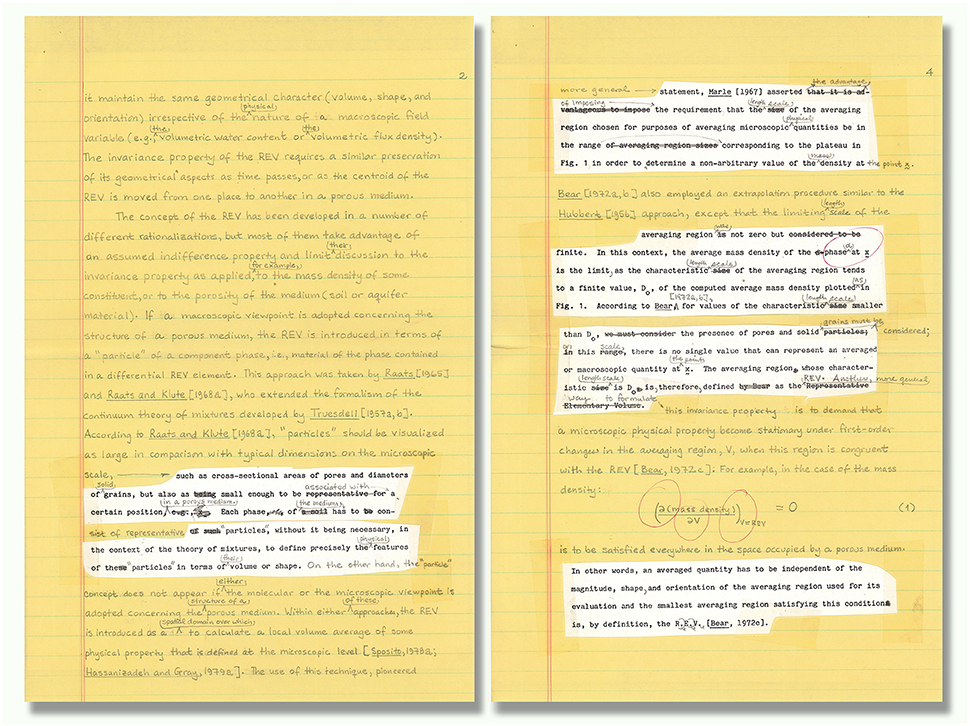 2
it maintain the same geometrical character (volume, shape, and
(physical)
orientation) irrespective of the nature of a macroscopic field
(the) (the)
variable (e.g., volumetric water content or volumetric flux density).
The invariance property of the REV requires a similar preservation
of its geometrical aspects as time passes, or as the centroid of the
REV is moved from one place to another in a porous medium.
The concept of the REV has been developed in a number of
different rationalizations, but most of them take advantage of
(their)
an assumed indifference property and limit discussion to the
(for example,)
invariance property as applied, to the mass density of some
constituent, or to the porosity of the medium (soil or aquifer
material). If a macroscopic viewpoint is adopted concerning the
structure of a porous medium, the REV is introduced in terms of
a "particle" of a component phase, i.e., material of the phase contained
in a differential REV element. This approach was taken by Raats [1965]
and Raats and Klute [1968a], who extended the formalism of the
continuum theory of mixtures developed by Truesdell [1957a,b].
According to Raats and Klute [1968a], "particles" should be visualized
as large in comparison with typical dimensions on the microscopic
scale, such as cross-sectional areas of pores and diameters
(solid) associated with
of grains, but also as being small enough to be representative for a
(in a porous medium.) (the medium,)
certain position, e.g., x. Each phase, of a soil has to be con-
sist of representative of such "particles", without it being necessary, in
(physical)
the context of the theory of mixtures, to define precisely the features
(their)
of these "particles" in terms of volume or shape. On the other hand, the "particle"
(either)
concept does not appear if the molecular or the microscopic viewpoint is
(structure of a) (of these)
adopted concerning the porous medium. Within either approaches, the REV
(spatial domain over which)
is introduced as a to calculate a local volume average of some
physical property that is defined at the microscopic level [Sposito, 1978a;
Hassanizadeh and Gray, 1979a]. The use of this technique, pioneered
4
the advantage,
more general statement, Marle [1967] asserted that it is ad-
of imposing (length scale)
vantageous to impose the requirement that the size of the averaging
(physical)
region chosen for purposes of averaging microscopic quantities be in
the range of averaging region sizes corresponding to the plateau in
(mass)
Fig. 1 in order to determine a non-arbitrary value of the density at the point x.
Bear [1972a,b] also employed an extrapolation procedure similar to the
(length)
Hubbert [1956] approach, except that the limiting scale of the
averaging region is not zero but considered to be
finite. In this context, the average mass density of the α-phase at x
(length scale)
is the limit, as the characteristic size of the averaging region tends
(as)
to a finite value, D₀, of the computed average mass density plotted in
[1972a,b], (length scale)
Fig. 1. According to Bear, for values of the characteristic size smaller
grains must be
than D₀, we must consider the presence of pores and solid particles; considered;
scale,
in this range, there is no single value that can represent an averaged
(the point)
or macroscopic quantity at x. The averaging region, whose character-
(length scale) REV. Another, more general,
istic size is D₀, is, therefore, defined by Bear as the Representative
way to formulate
Elementary Volume. this invariance property is to demand that
a microscopic physical property become stationary under first-order
changes in the averaging region, V, when this region is congruent
with the REV [Bear, 1972c]: For example, in the case of the mass
density:
(∂(mass density)/∂V)V=REV = 0 (1)
is to be satisfied everywhere in the space occupied by a porous medium.
In other words, an averaged quantity has to be independent of the
magnitude, shape, and orientation of the averaging region used for its
evaluation and the smallest averaging region satisfying this conditions
is, by definition, the R.E.V. [Bear, 1972c].